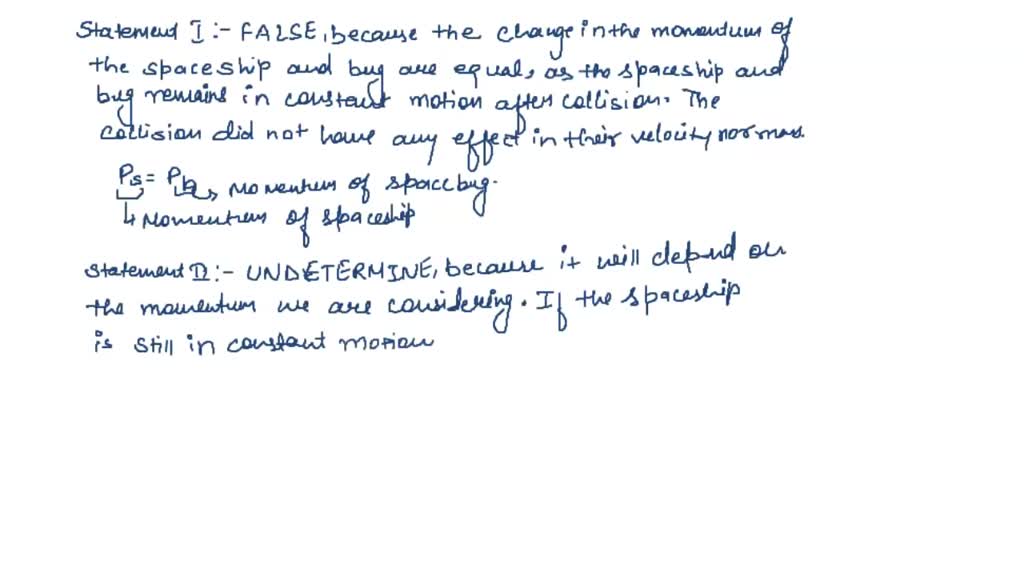 Statement I :- FALSE, because the change in the momentum of
the spaceship and bug are equal, as the spaceship and
bug remains in constant motion after collision. The
collision did not have any effect in their velocity nor mass.
Ps = Pb → Momentum of space bug.
↳ Momentum of spaceship
Statement II :- UNDETERMINE, because it will depend on
the momentum we are considering. If the spaceship
is still in constant motion